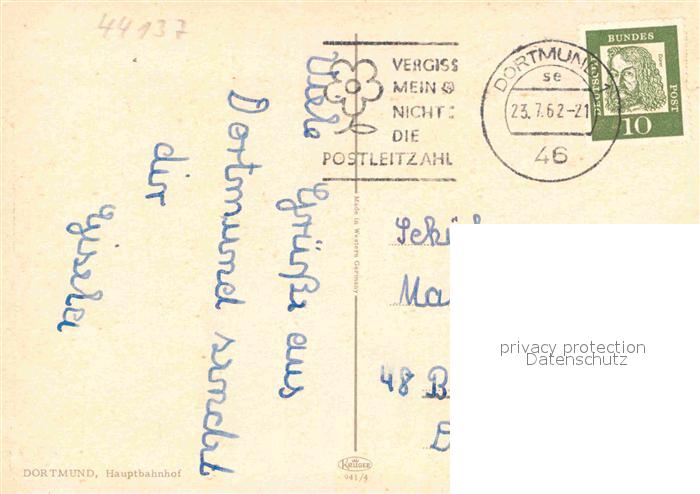 44137
VERGISS
MEIN
NICHT
DIE
POSTLEITZAHL
DORTMUND
se
23.7.62-21
46
BUNDES
DEUTSCHE
POST
Dürer
10
Viele Grüße aus
Dortmund sendet
dir
Gisela
Made in Western Germany
48 B
privacy protection
Datenschutz
DORTMUND, Hauptbahnhof
KRÜGER
941/4